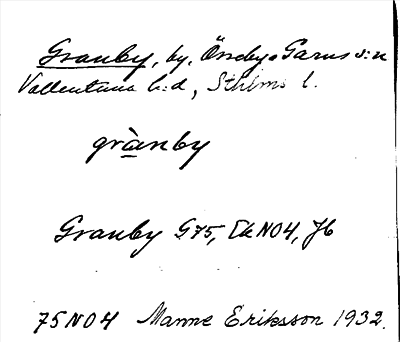 Granby, by, Össeby-Garns s:n
Vallentuna h:d, Sthlms l.
grànby
Granby G75, Ek NO4, Jb
75 NO4 Manne Eriksson 1932.